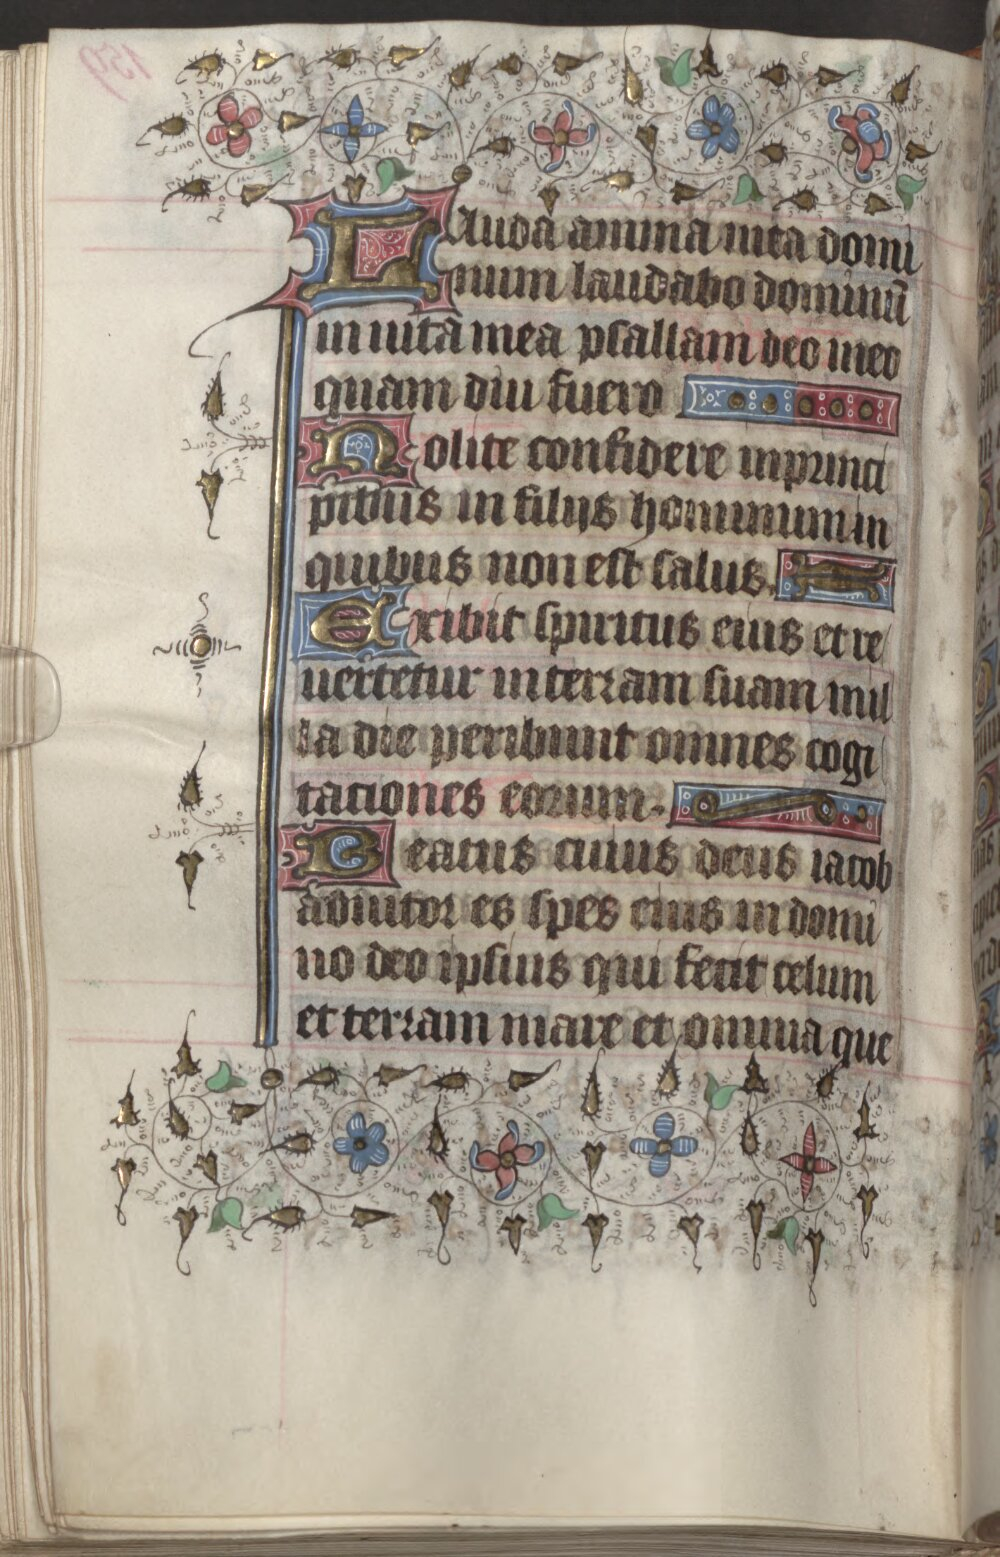 Lauda anima mea domi
num laudabo dominū
in uita mea psallam deo meo
quam diu fuero
Nolite confidere in princi
pibus in filijs hominum in
quibus non est salus.
Exibit spiritus eius et re
uertetur in terram suam in il
la die peribunt omnes cogi
tationes eorum.
Beatus cuius deus iacob
adiutor es spes eius in domi
no deo ipsius qui fecit celum
et terram mare et omnia que